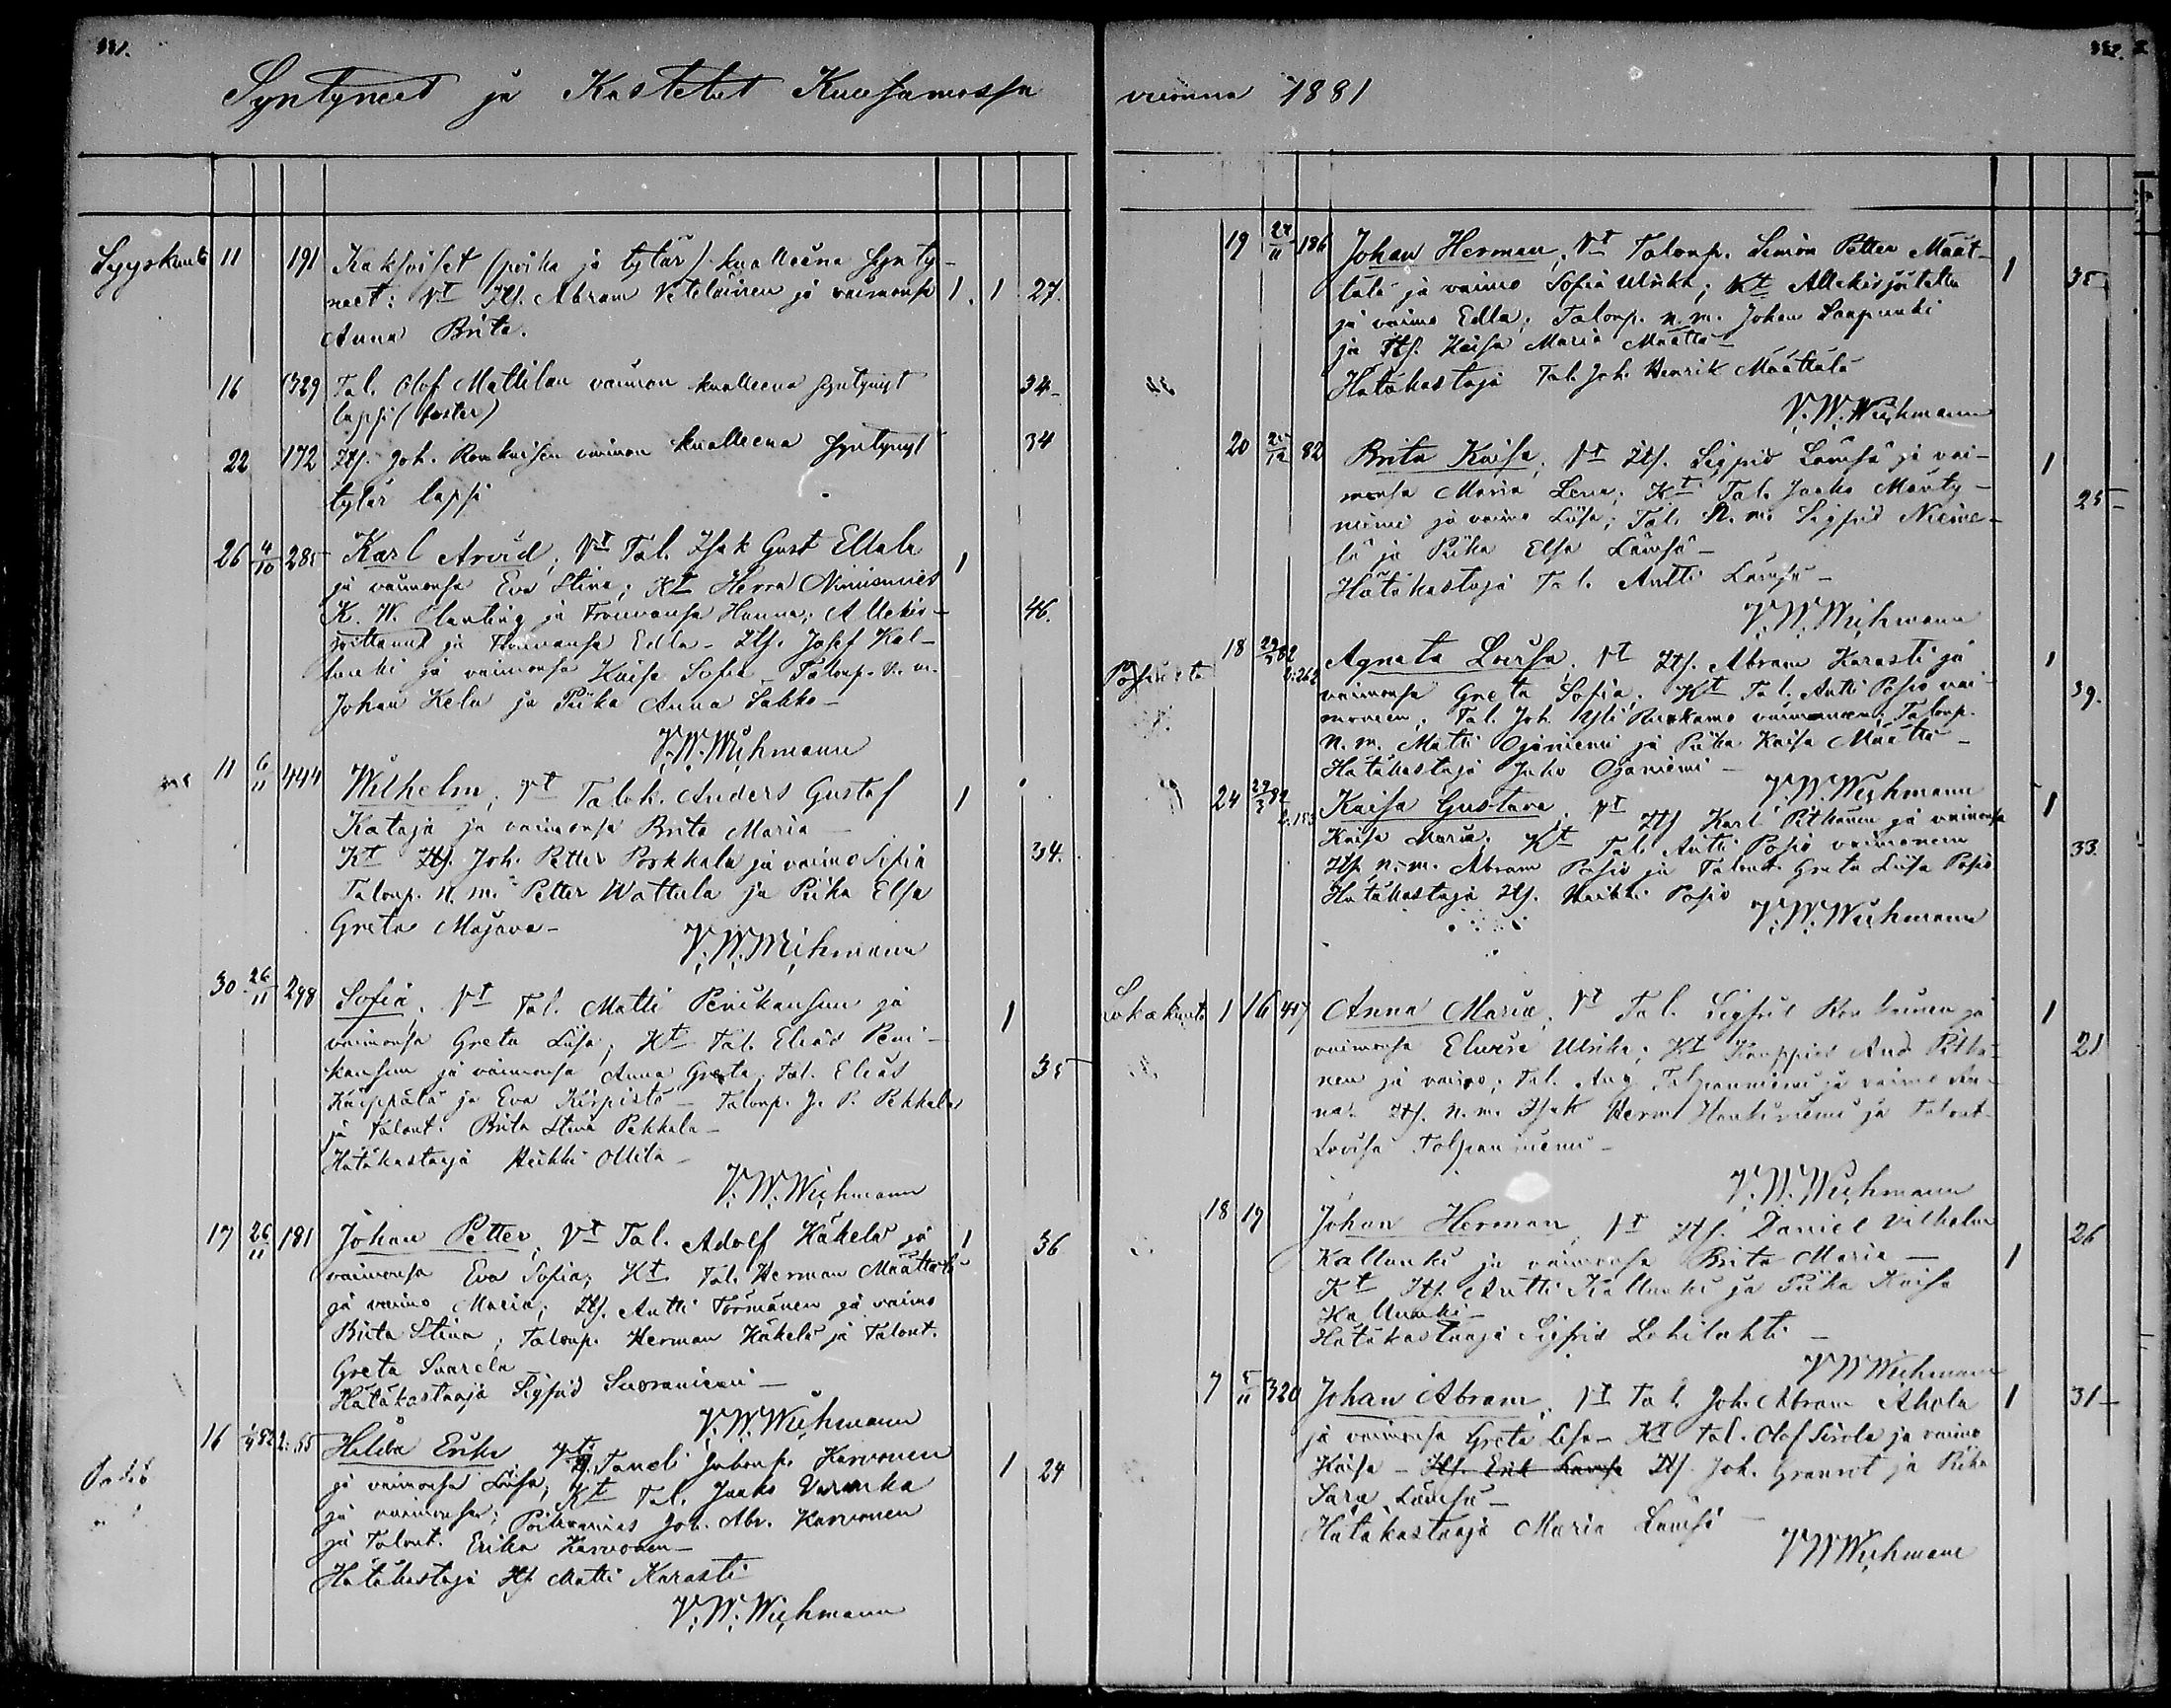 Syntyneet ja Kastetut Kuusamossa
Syyskuu 11 191 Kaksoiset (poika ja tytär) kuolleena synty-
neet: Vt Its. Abram Veteläinen ja vaimonsa 1. 1 27.
Anna Brita.
16 329 Tal. Olof Mattilan vaimon kuolleena syntynyt 34-
lapsi (foster)
22 172 Its. Joh. Ronkaisen vaimon kuolleena syntynyt 34
tytär lapsi
26 4/10 285 Karl Arvid, Vt Tal. Isak Gust Ellala 1
ja vaimonsa Eva Stina; Kt Herra Nimismies
K. W. Clanting ja Frouvansa Hanna; Allekir- 46.
joittanut ja Frouvansa Edla - Its. Josef Kal-
lunki ja vaimonsa Kaisa Sofia - Talonp. n. m.
Johan Kela ja Piika Anna Sakko -
V. W. Wichmann
11 6/11 444 Wilhelm, Vt Talok. Anders Gustaf 1
Kataja ja vaimonsa Brita Maria -
Kt Its. Joh. Petter Porkkala ja vaimo Sofia 34.
Talonp. n. m. Petter Wattula ja Piika Elsa
Greta Majava -
V. W. Wichmann
30 26/11 298 Sofia, Vt Tal. Matti Penikansuu ja
vaimonsa Greta Liisa; Kt Tal. Elias Peni- 1
kansuu ja vaimonsa Anna Greta; Tal. Elias 35
Käippälä ja Eva Kirpistö - Talonp. J. P. Pekkala
ja Talont. Brita Stina Pekkala -
Hätäkastaja Heikki Ollila -
V. W. Wichmann
17 26/11 181 Johan Petter, Vt Tal. Adolf Käkelä ja 1 36
vaimonsa Eva Sofia; Kt Tal. Herman Määttälä
ja vaimo Maria; Its. Antti Törmänen ja vaimo
Brita Stina; Talonp. Herman Käkelä ja Talont.
Greta Suarela
Hätäkastaja Sigfrid Suoraniemi -
V. W. Wichmann
16 2:55 Hilda Erika Vt Taneli Karvonen
ja vaimonsa Liisa; Kt Tal. Jaako 1 24
ja vaimonsa; Poikamies Joh. Abr. Karvonen
ja Talont. Erika Karvonen -
Hätäkastaja Its Matti Karasti
V. W. Wichmann
vuonna 1881
19 27/11 186 Johan Herman, Vt Talonp. Simon Petter Määt-
tälä ja vaimo Sofia Ulrika; Kt Allekirjoitettu 1 35
ja vaimo Edla; Talonp. n. m. Johan Saapunki
ja Its. Kaisa Maria Määttä -
Hätäkastaja Tal. Joh. Henrik Määttälä
V. W. Wichmann
20 82 Brita Kaisa, Vt Its. Sigfrid Lämsä ja vai- 1
monsa Maria Lena; Kt Tal. Jaako Mänty-
niemi ja vaimo Liisa; Tal. n. m. Sigfrid Nieme- 25
lä ja Piika Elsa Lämsä -
Hätäkastaja Tal. Antti Lämsä -
V. W. Wichmann
18 2:262 Agneta Lovisa, Vt Its. Abram Karasti ja 1
vaimonsa Greta Sofia; Kt Tal. Antti Posio vai- 39.
moneen; Tal. Joh. Yli Ruokamo vaimoneen; Talonp.
n. m. Matti Ojaniemi ja Piika Kaisa Määttä -
Hätäkastaja Juho Ojaniemi -
V. W. Wichmann
24 Kaisa Gustava, Vt Its Karl Pitkänen ja vaimonsa 1
Kaisa Maria; Kt Tal. Antti Posio vaimoneen 33.
Its n. m. Abram Posio ja Talont. Greta Liisa Posio
Hätäkastaja Its. Heikki Posio
V. W. Wichmann
Lokakuuta 1 16 417 Anna Maria, Vt Tal. Sigfrid Ronkainen ja 1
vaimonsa Elviira Ulrika; Kt Kauppias And. Pitkä- 21
nen ja vaimo; Tal. Aug. Tolpanniemi ja vaimo An-
na. Its. n. m. Isak Herm. Hankiniemi ja Talont.
Lovisa Tolpanniemi -
V. W. Wichmann
18 19 Johan Herman, Vt Its. Daniel Vilhelm 26
Kallunki ja vaimonsa Brita Maria - 1
Kt Its. Antti Kallunki ja Piika Kaisa
Kallunki -
Hätäkastaaja Sigfrid Lohilahti -
V W Wichmann
7 5/11 320 Johan Abram, Vt Tal. Joh. Abram Ahola 1 31-
ja vaimonsa Greta Lisa - Kt Tal. Olof Sirola ja vaimo
Kaisa - Its. Erik Lämsä Its. Joh. Granrot ja Piika
Sara Lämsä -
Hätäkastaaja Maria Lämsä -
V W Wichmann